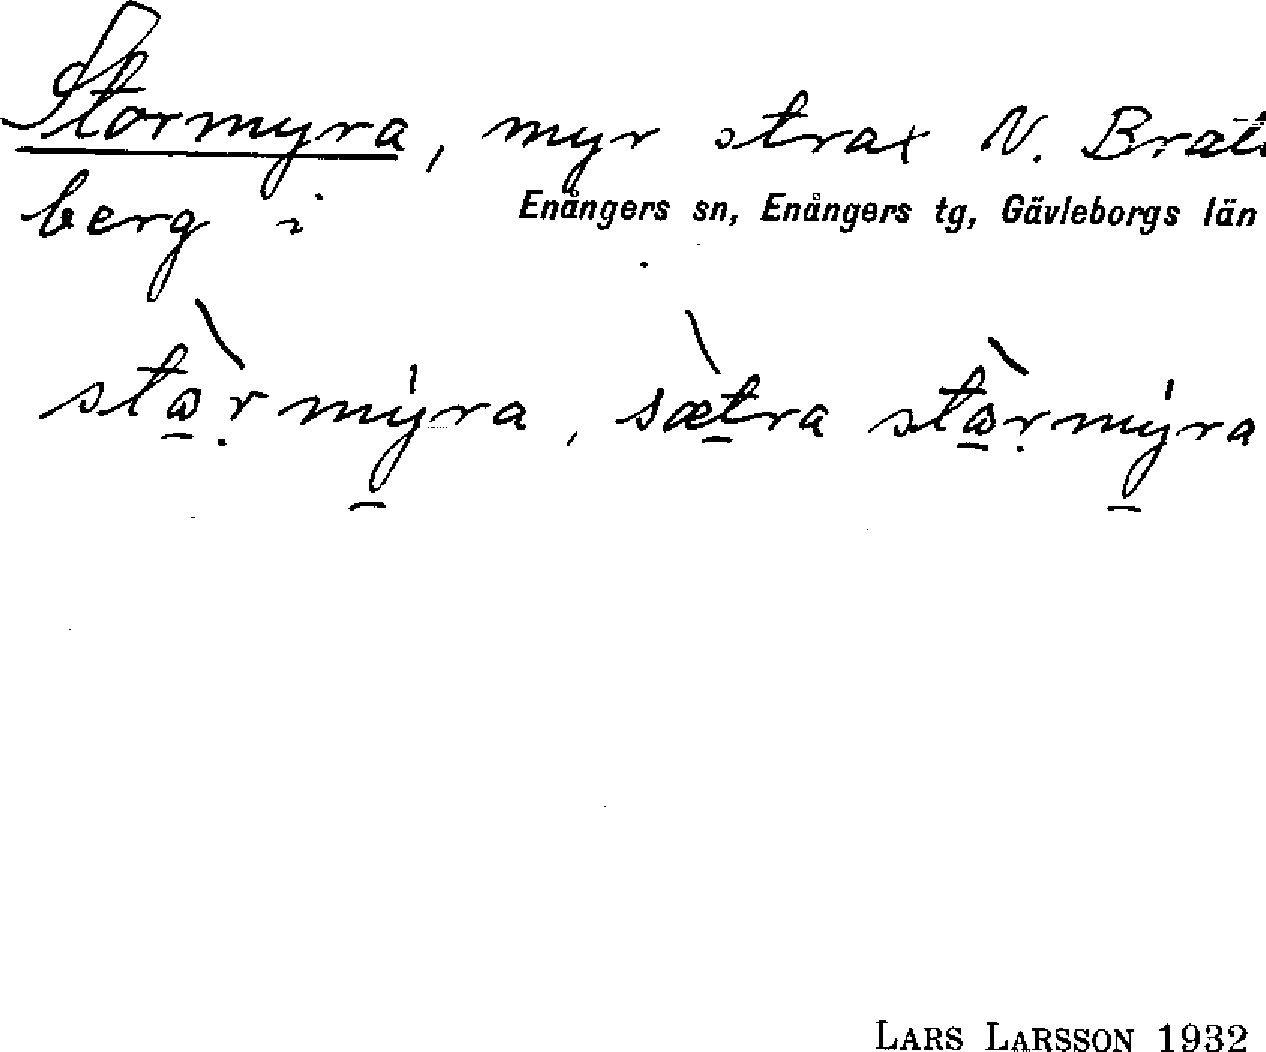 Stormyra, myr strax N.
berg i Enångers sn, Enångers tg, Gävleborgs län
stὼ̠ṛmý̠ra, sæ̀t̠ra stὼ̠ṛmý̠ra
LARS LARSSON 1932